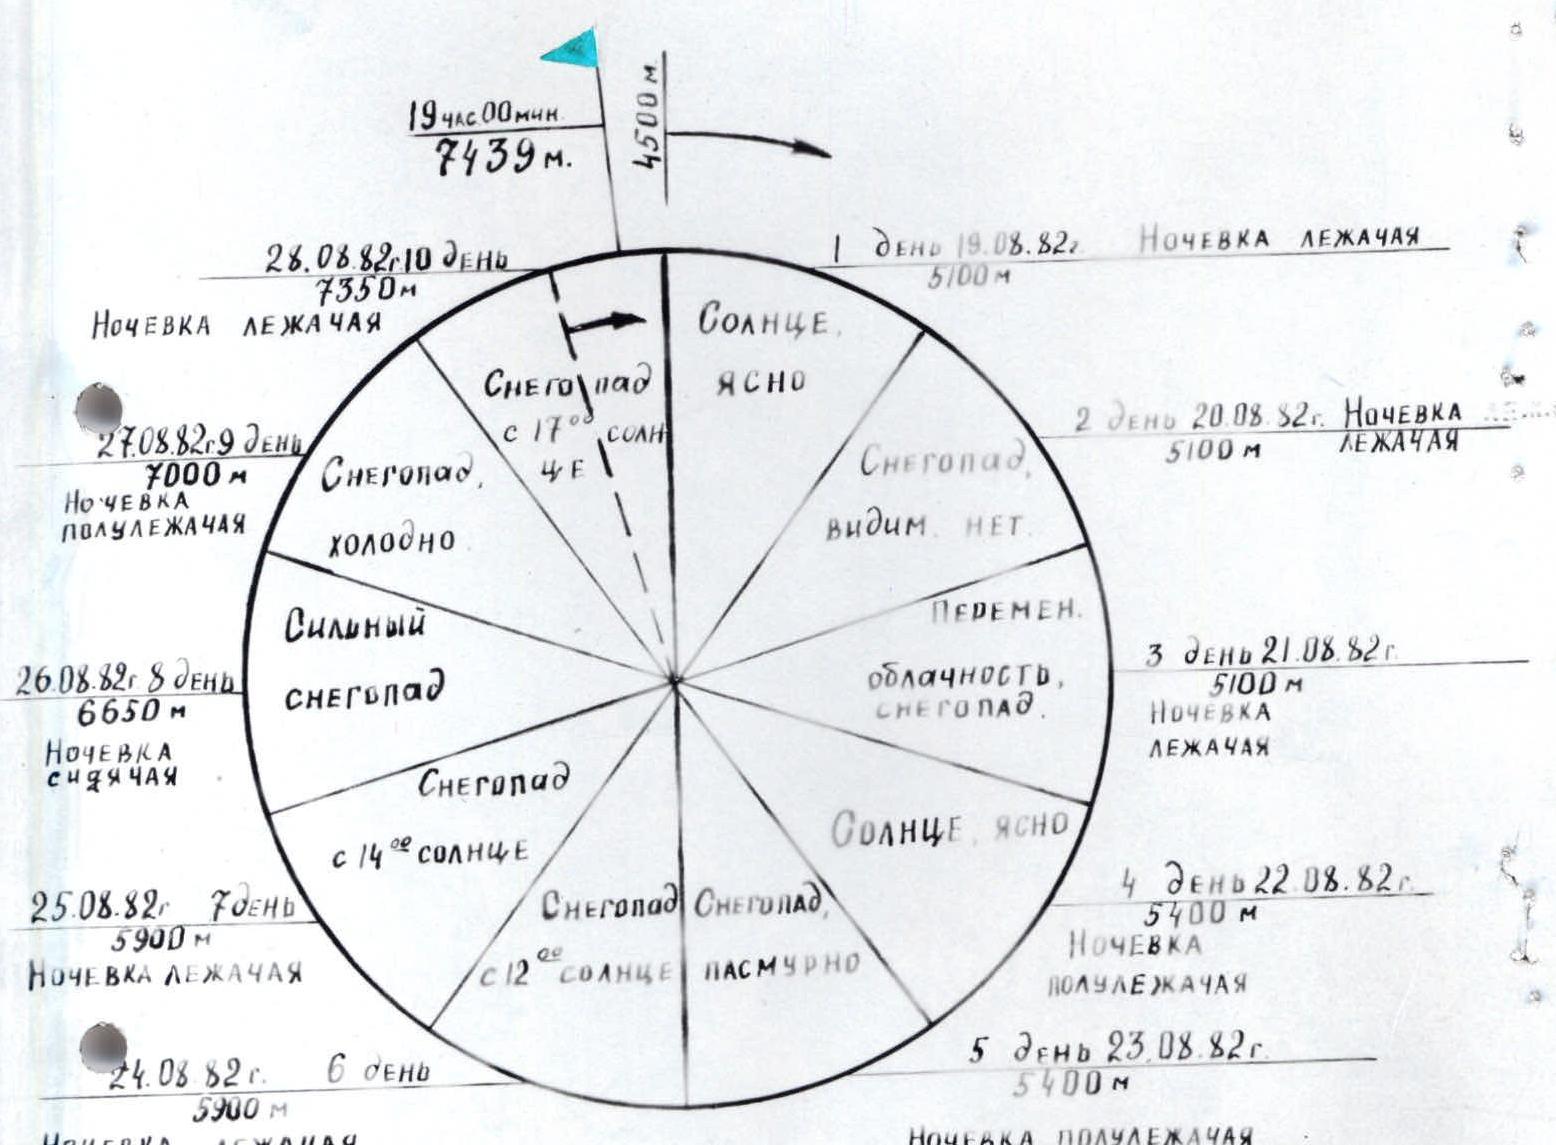 19 час.00 мин.
7439 м.
4500 м.
1 день 19.08.82г. Ночевка лежачая
5100 м
28.08.82г 10 день
7350 м
Ночевка лежачая
Солнце,
ясно
Снегопад
с 17⁰⁰ солн
це
2 день 20.08.82г. Ночевка
5100 м лежачая
Снегопад,
видим. нет.
27.08.82г. 9 день
7000 м
Ночевка
полулежачая
Снегопад,
холодно
Перемен.
облачность,
снегопад.
3 день 21.08.82г.
5100 м
Ночевка
лежачая
Сильный
снегопад
26.08.82г 8 день
6650 м
Ночевка
сидячая
Солнце, ясно
4 день 22.08.82г.
5400 м
Ночевка
полулежачая
Снегопад
с 14⁰⁰ солнце
25.08.82г 7 день
5900 м
Ночевка лежачая
Снегопад,
пасмурно
5 день 23.08.82г.
5400 м
Ночевка полулежачая
Снегопад
с 12⁰⁰ солнце
24.08.82г. 6 день
5900 м
Ночевка лежачая